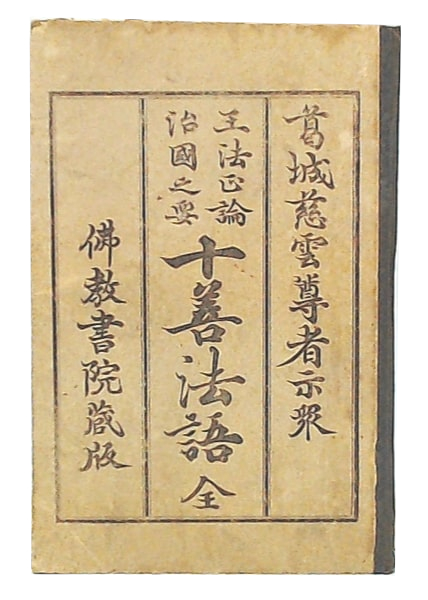 葛城慈雲尊者示衆
王法正論
治國之要
十善法語 全
佛教書院蔵版